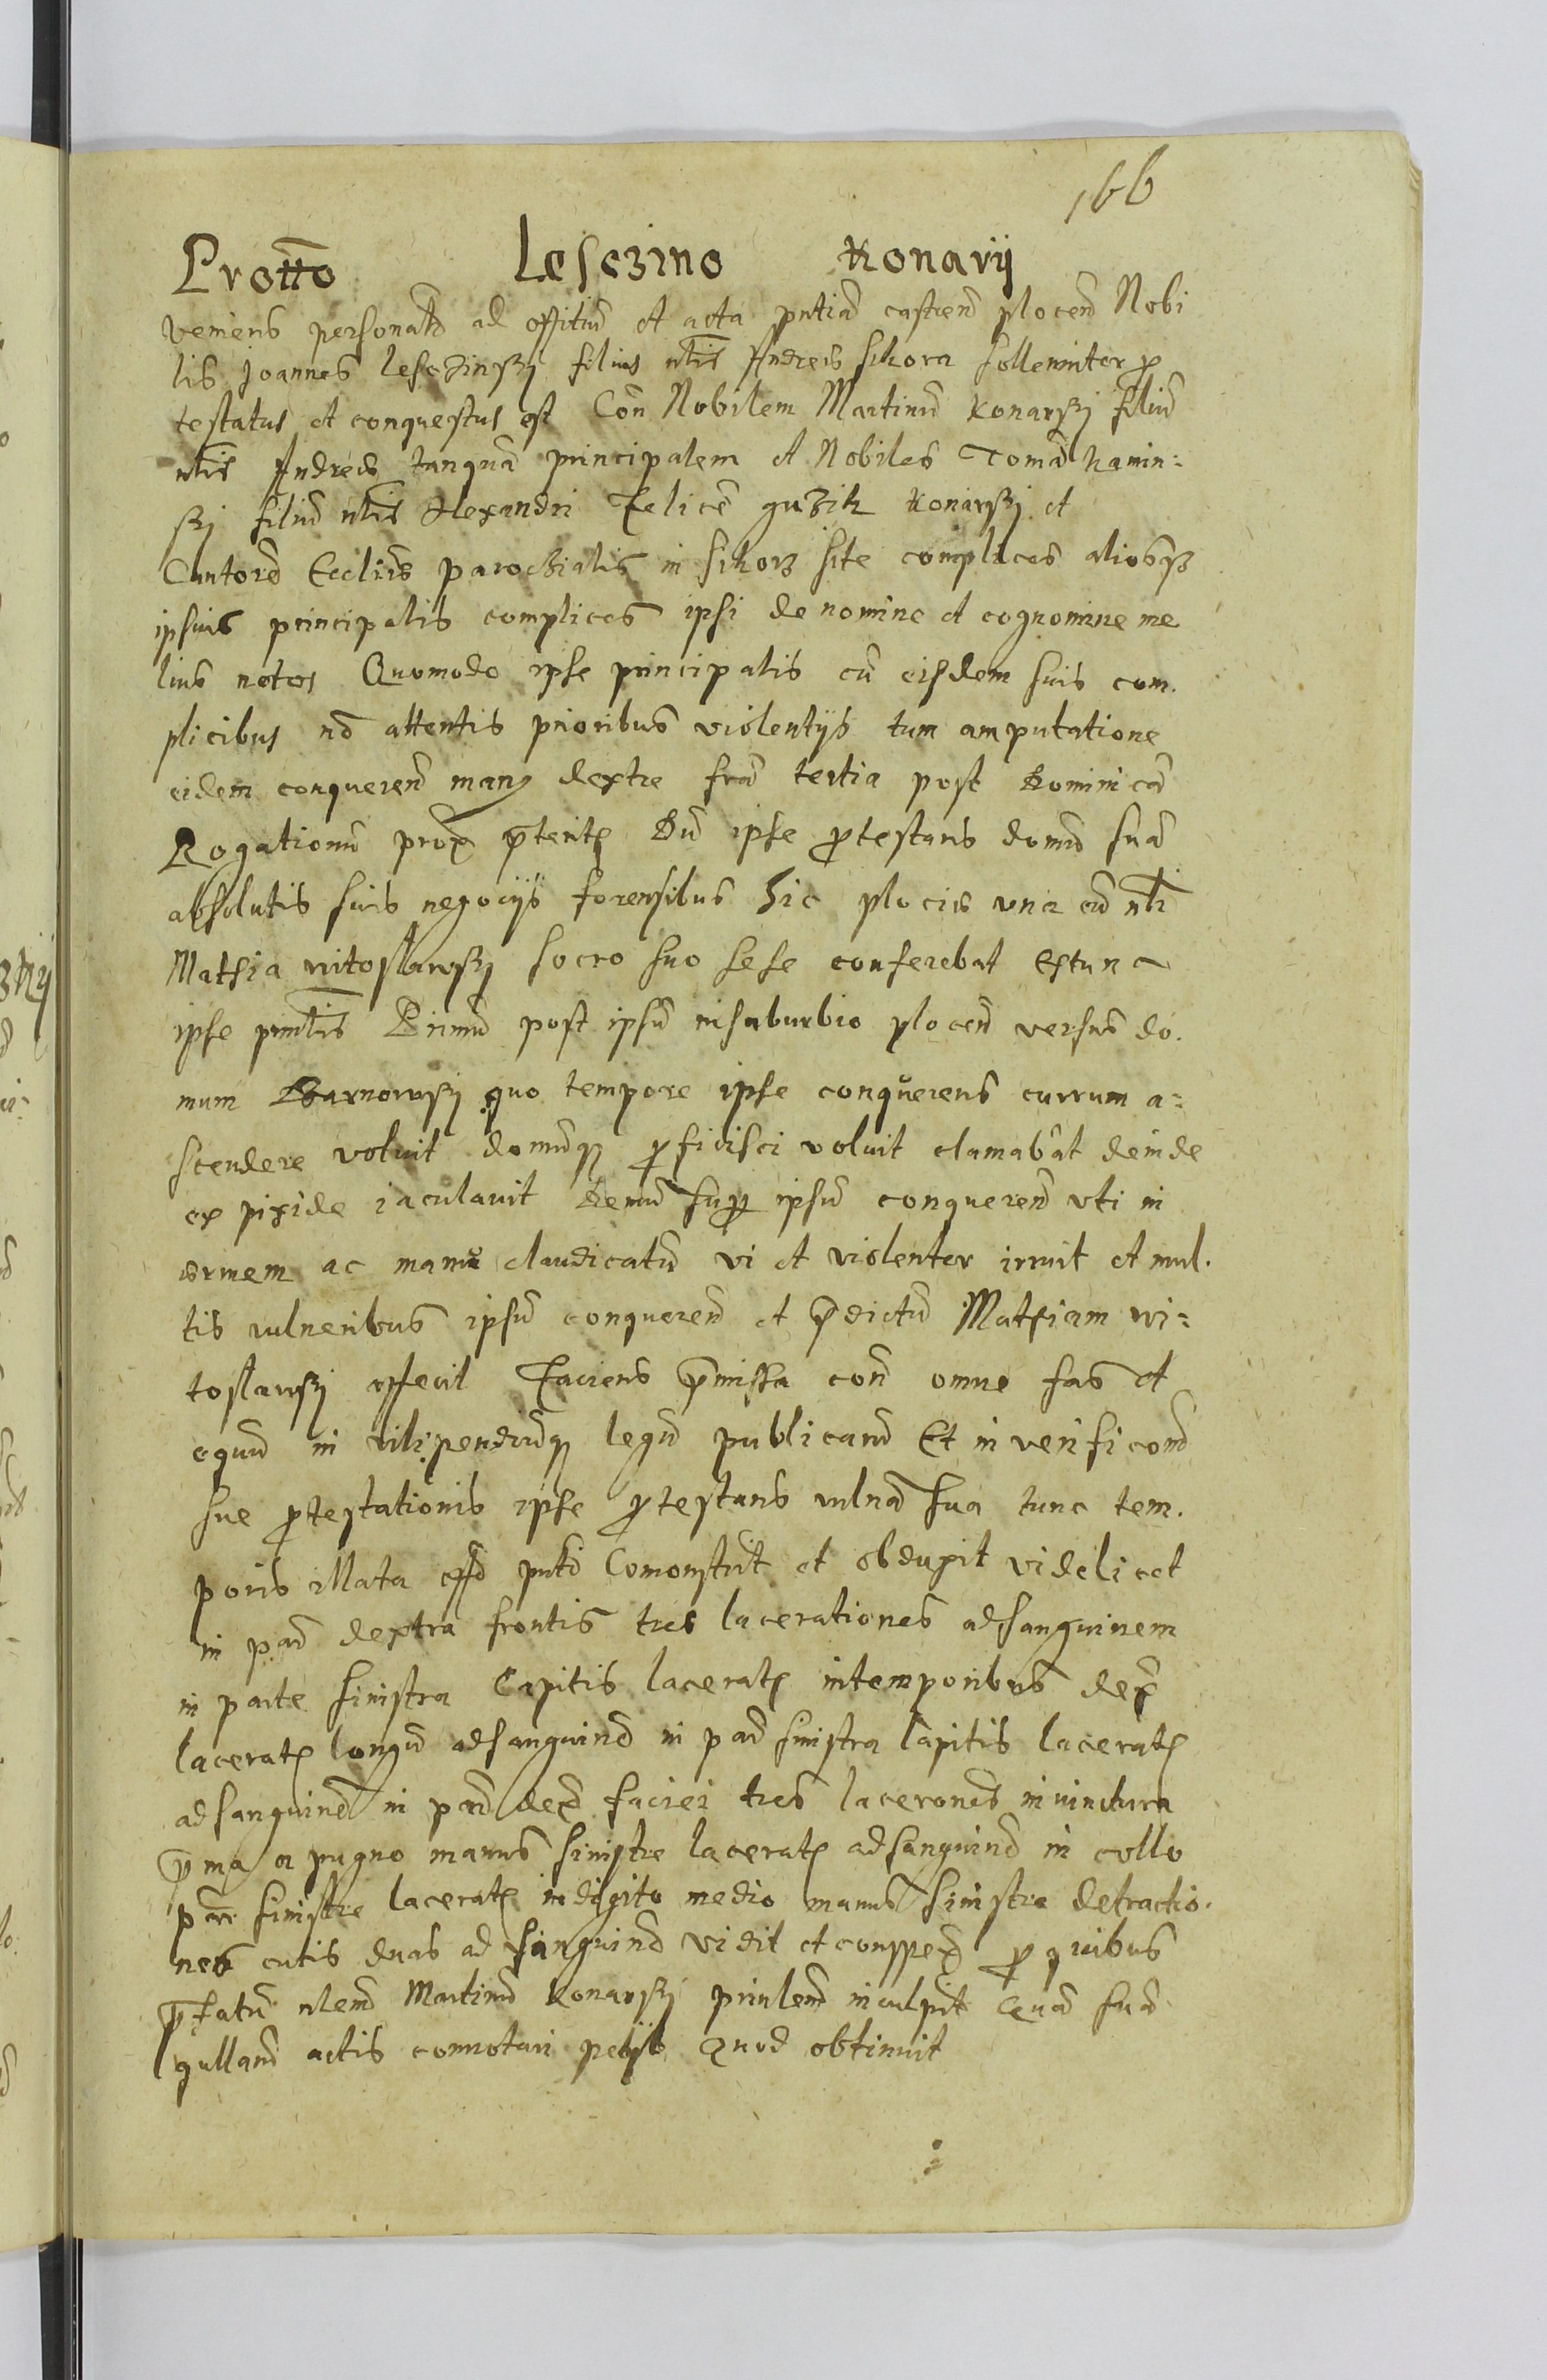 166
Protto Lesczino Konarij
veniens personalr ad offitiu et acta pntia castren plocen Nobi
lis Joannes lesczinsky filius nlis Andreae sikora sollemniter p
testatus et conquestus est Con Nobilem Martinu Konarsky filiu
nlis Andreae tanqua principalem et Nobiles Toma kamin:
sky filiu nlis Alexandri Felice guzik Konarsky et
Cantore Eccliae parochialis in sikorz site complices aliosqz
ipsius principalis complices ipsi de nomine et cognomine me
lius notos Quomodo ipse principalis cu eisdem suis com.
plicibus no attentis prioribus violentijs tum amputatione
eidem conqueren manq dextre fria tertia post Dominica
Rogationu prox pterit Du ipse ptestans domu sua
absolutis suis negocijs forensibus hic plocie una cu nli
Mathia witoslawsky socro suo sese conferebat Extunc
ipse pnnlis Primu post ipsu in suburbio plocen versus do.
mum Barnowsky quo tempore ipse conquerens currum a:
scendere voluit domuqz pficisci voluit clamabat deinde
ex pixide iaculavit Demu supr ipsu conqueren uti in
ermem ac manu claudicatu vi et violenter irruit et mul.
tis vulneribus ipsu conqueren et pdictu Mathiam wi:
toslawsky affecit Faciens pmissa con omne fas et
equu in vilipendiuqz legu publicaru Et in verificone
sue ptestationis ipse ptestans vulna sua tunc tem.
poris illata offo pnti Comonstrit et obduxit videlicet
in par dextra frontis tres lacerationes ad sanguinem
in parte sinistra Capitis lacerat in temporibus dex
lacerat longu ad sanguine in par sinistra capitis lacerat
ad sanguine in par dex faciei tres lacerones in iunctura
pma a pugno manus sinistre lacerat ad sanguine in collo
par sinistre lacerat in digito medio manus sinistre detractio.
nes cutis duas ad sanguine vidit et conspex p quibus
pfatu nlem Martinu Konarsky prinlem inculpit Qua sua
qullam actis connotari petijt Quod obtinuit